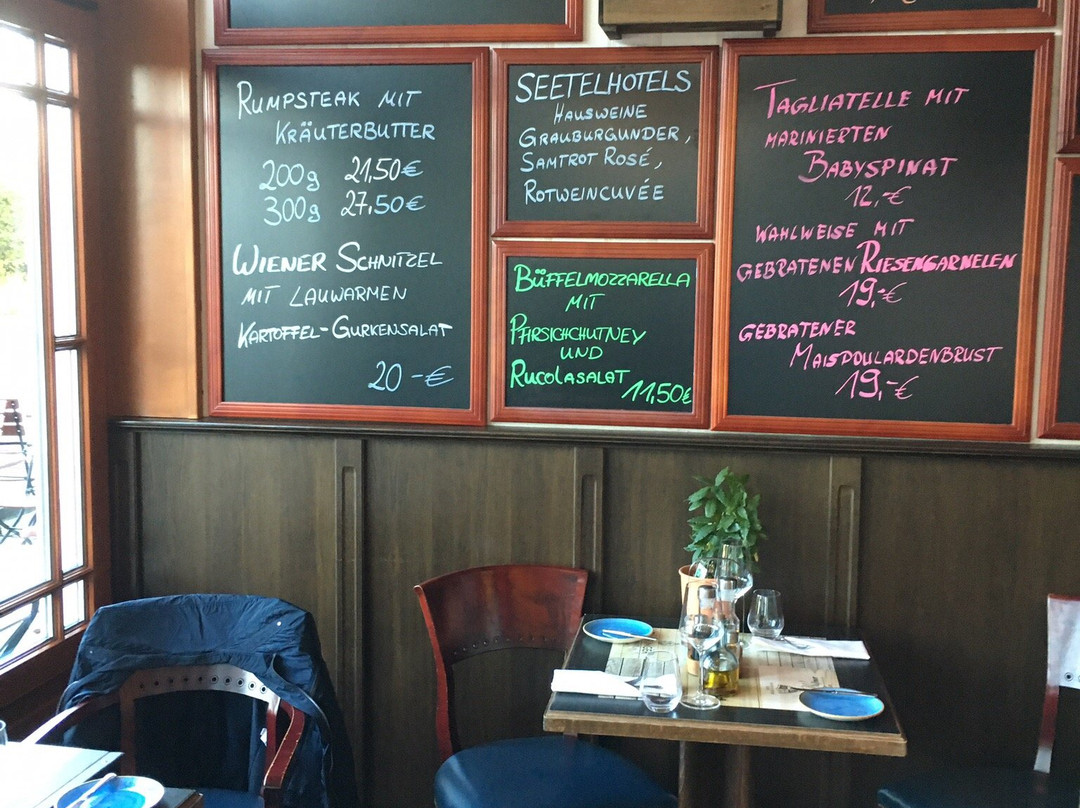 RUMPSTEAK MIT
KRÄUTERBUTTER
200g 21,50€
300g 27,50€
WIENER SCHNITZEL
MIT LAUWARMEN
KARTOFFEL-GURKENSALAT
20-€
SEETELHOTELS
HAUSWEINE
GRAUBURGUNDER,
SAMTROT ROSÉ,
ROTWEINCUVÉE
BÜFFELMOZZARELLA
MIT
PFIRSICHCHUTNEY
UND
RUCOLASALAT
11,50€
TAGLIATELLE MIT
MARINIERTEN
BABYSPINAT
12,-€
WAHLWEISE MIT
GEBRATENEN RIESENGARNELEN
19,-€
GEBRATENER
MAISPOULARDENBRUST
19,-€